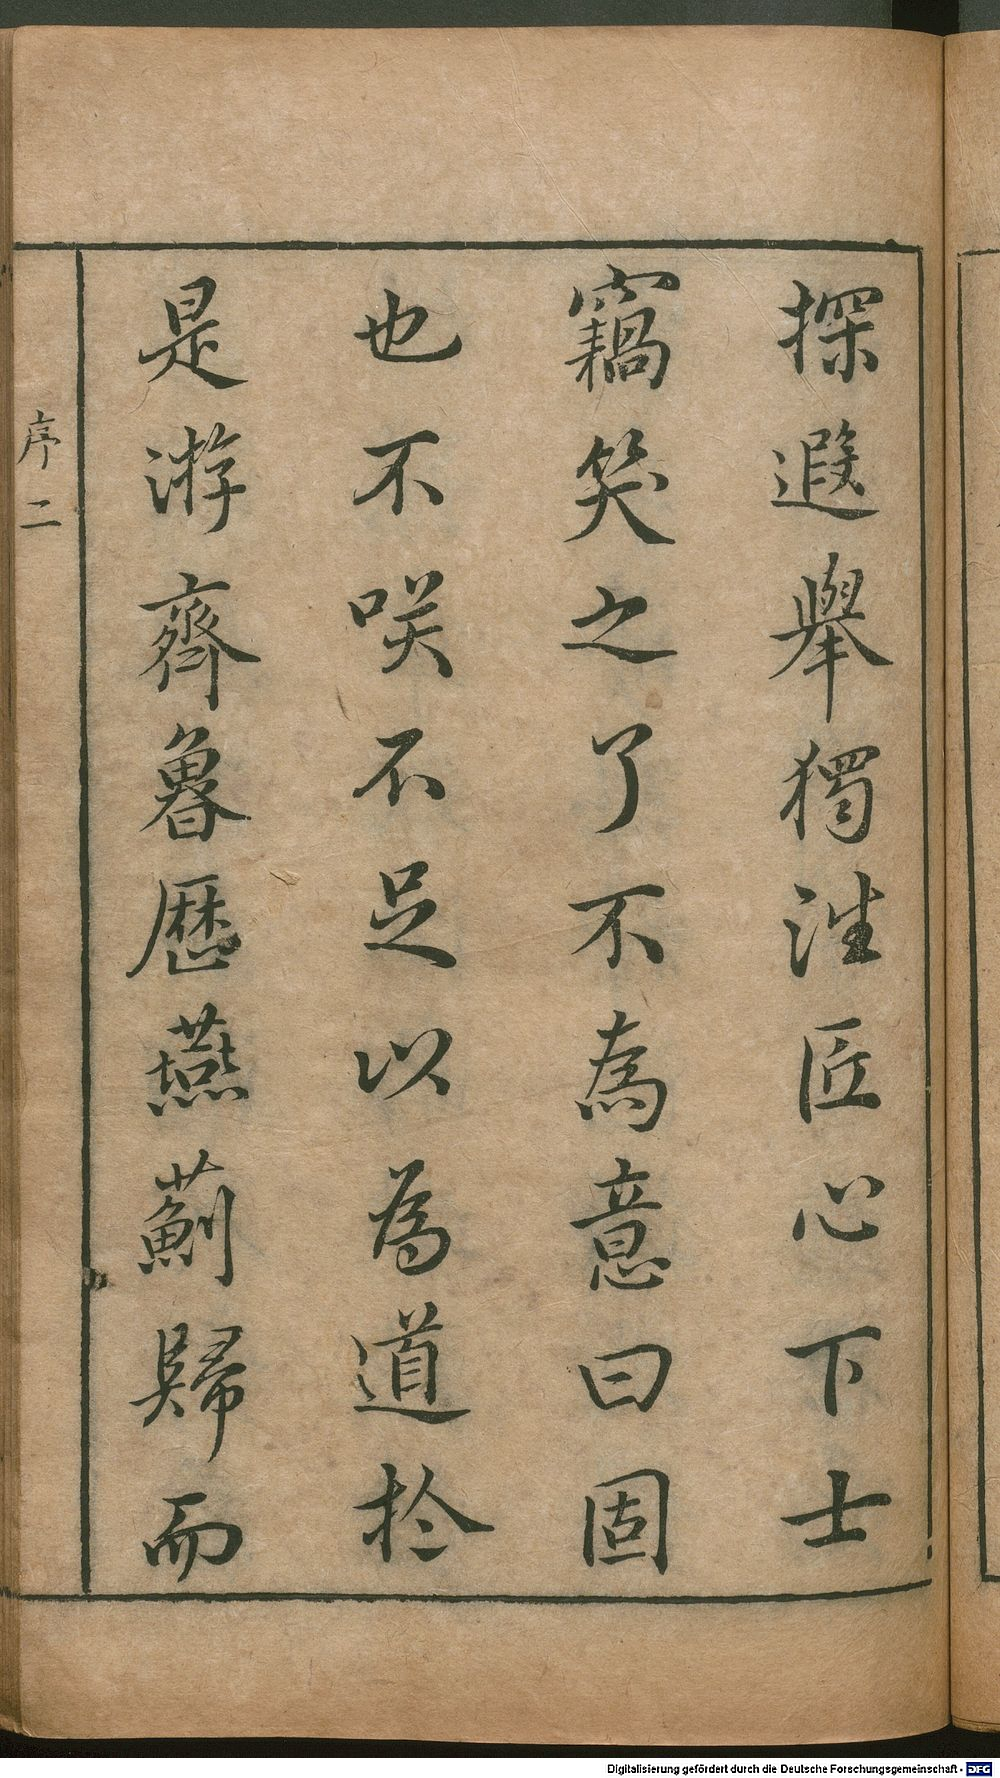 探遐舉獨注匠心下士
竊笑之了不為意曰固
也不咲不足以為道扵
是游齊魯歷燕薊歸而
序二
Digitalisierung gefördert durch die Deutsche Forschungsgemeinschaft - DFG